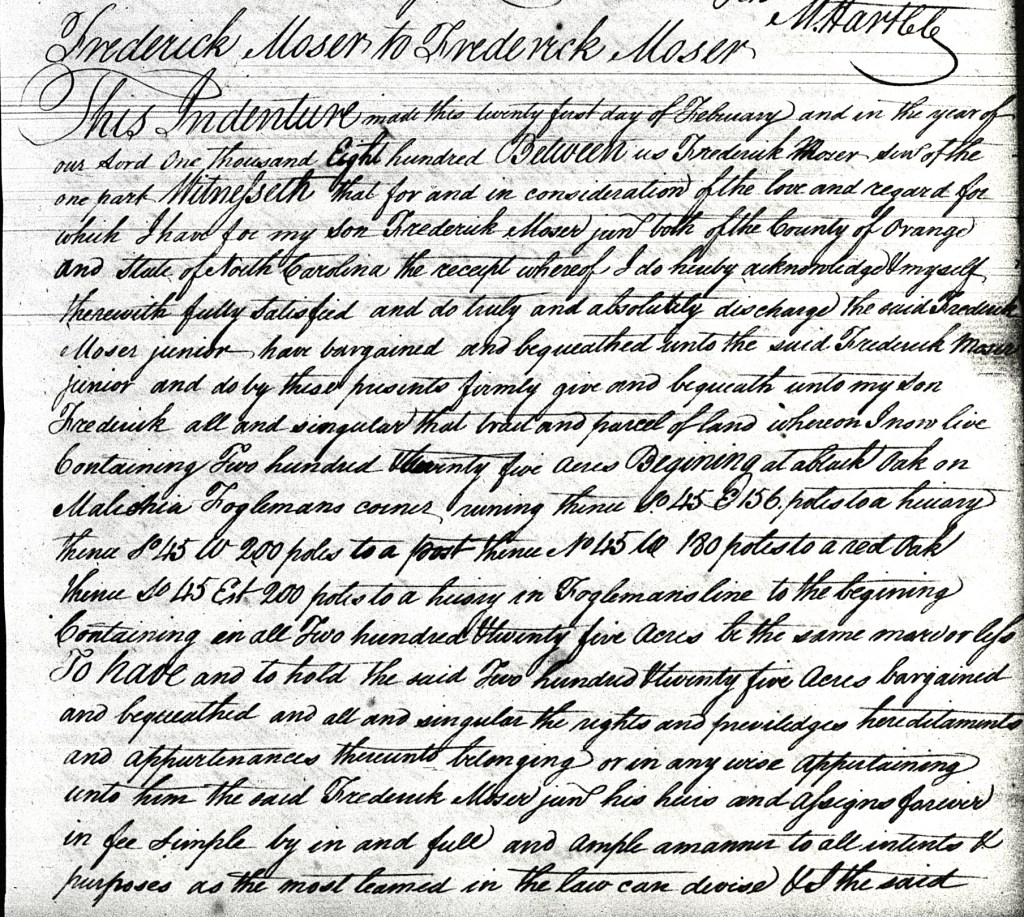 M. Hartlee
Frederick Moser to Frederick Moser
This Indenture made this twenty first day of February and in the year of
our Lord One thousand Eight hundred Between us Frederick Moser senr of the
one part Witnesseth that for and in consideration of the love and regard for
which I have for my son Frederick Moser junr both of the County of Orange
and State of North Carolina the receipt whereof I do hereby acknowledge & myself
therewith fully satisfied and do truly and absolutely discharge the said Frederick
Moser junior have bargained and bequeathed unto the said Frederick Moser
junior and do by these presents firmly give and bequeath unto my son
Frederick all and singular that tract and parcel of land whereon I now live
Containing Two hundred & twenty five Acres Begining at a black Oak on
Malichia Foglemans corner, runing thence So 45 E 156 poles to a hicory
thence So 45 W 200 poles to a post thence No 45 W 180 poles to a red Oak
thence So 45 Est 200 poles to a hicory in Foglemans line to the begining
Containing in all Two hundred & twenty five Acres be the same more or less
To have and to hold the said Two hundred & twenty five Acres bargained
and bequeathed and all and singular the rights and previledges hereditaments
and appurtenances thereunto belonging or in any wise appertaining
unto him the said Frederick Moser junr his heirs and assigns forever
in fee simple by in and full and ample amanner to all intents &
purposes as the most learned in the law can devise & I the said